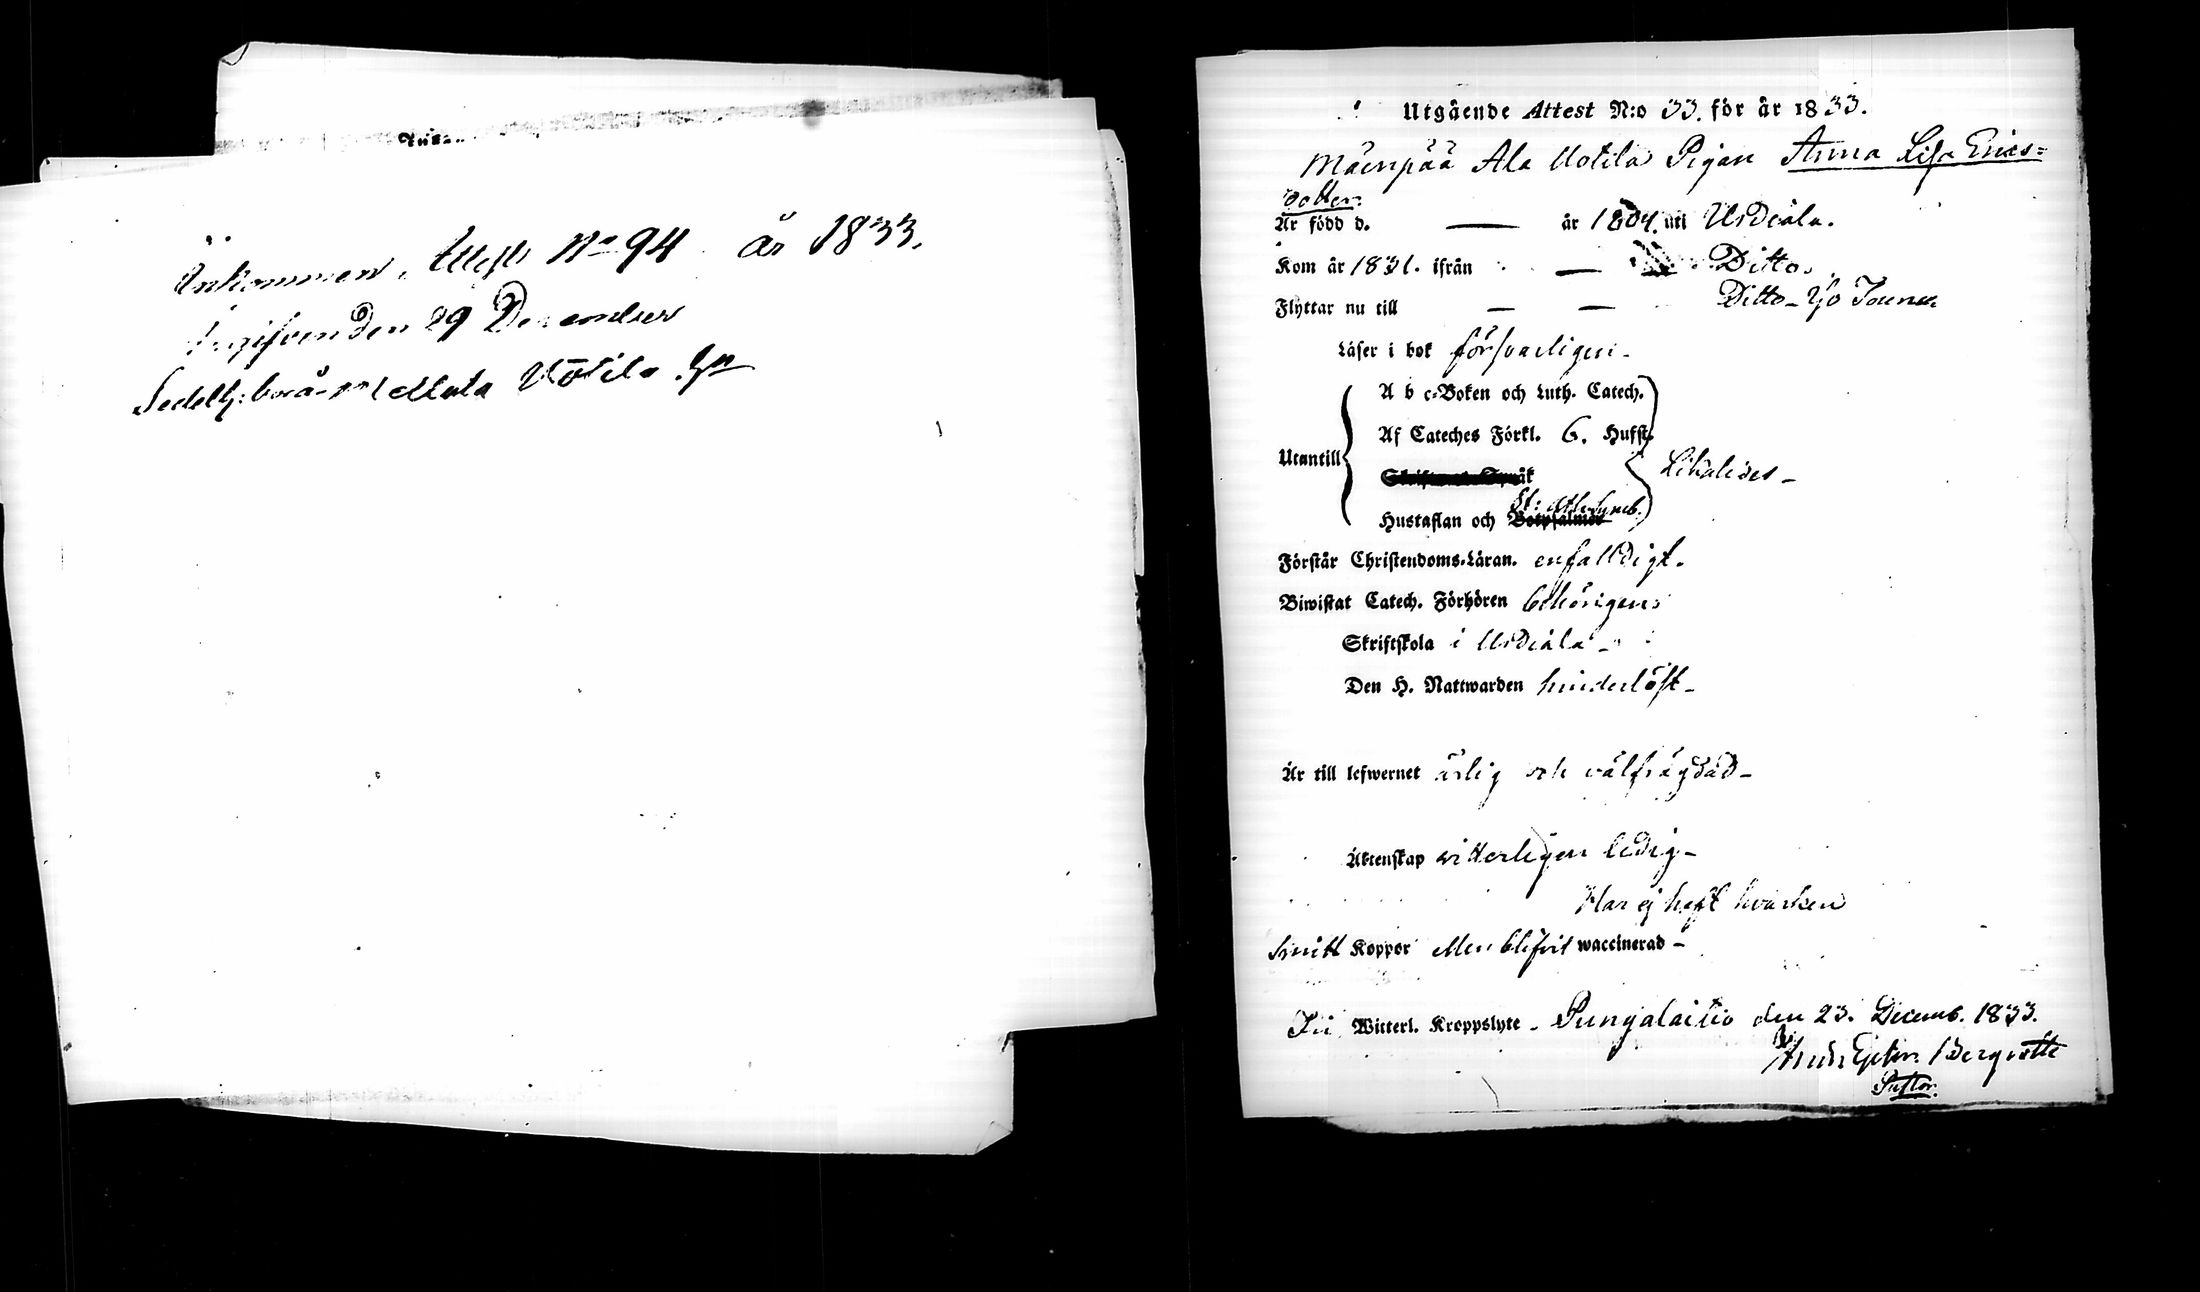 Inkommen Attest No 94 år 1833.
Ingifven den 29 December
Sedelh: bör
Utgående Attest N:o 33. för år 1833.
Mäenpää Ala Uotila Pigan Anna Lisa Erics=
dotter.
Är född d. — år 1804. uti Urdiala.
Kom år 1831. ifrån — Ditto.
Flyttar nu till — — Ditto
Läser i bok försvarligen.
A b c-Boken och Luth. Catech.
Af Cateches Förkl. 6. Hufst.
Utantill
Likaledes
Skriftenes Språk
St: Ath: Symb.
Hustaflan och Botpsalmer
Förstår Christendoms-Läran. enfalldigt.
Biwistat Catech. Förhören behörigen
Skriftskola i Urdiala
Den H. Nattwarden hinderlöst
Är till lefwernet ärlig och välfrägdad
Äktenskap witterligen ledig
Har ej haft hvarken
Smitt Koppor Men blifvit waccinerad
Fri Witterl. Kroppslyte. Pungalaitio den 23. Decemb. 1833.
Bergroth
Pastor.